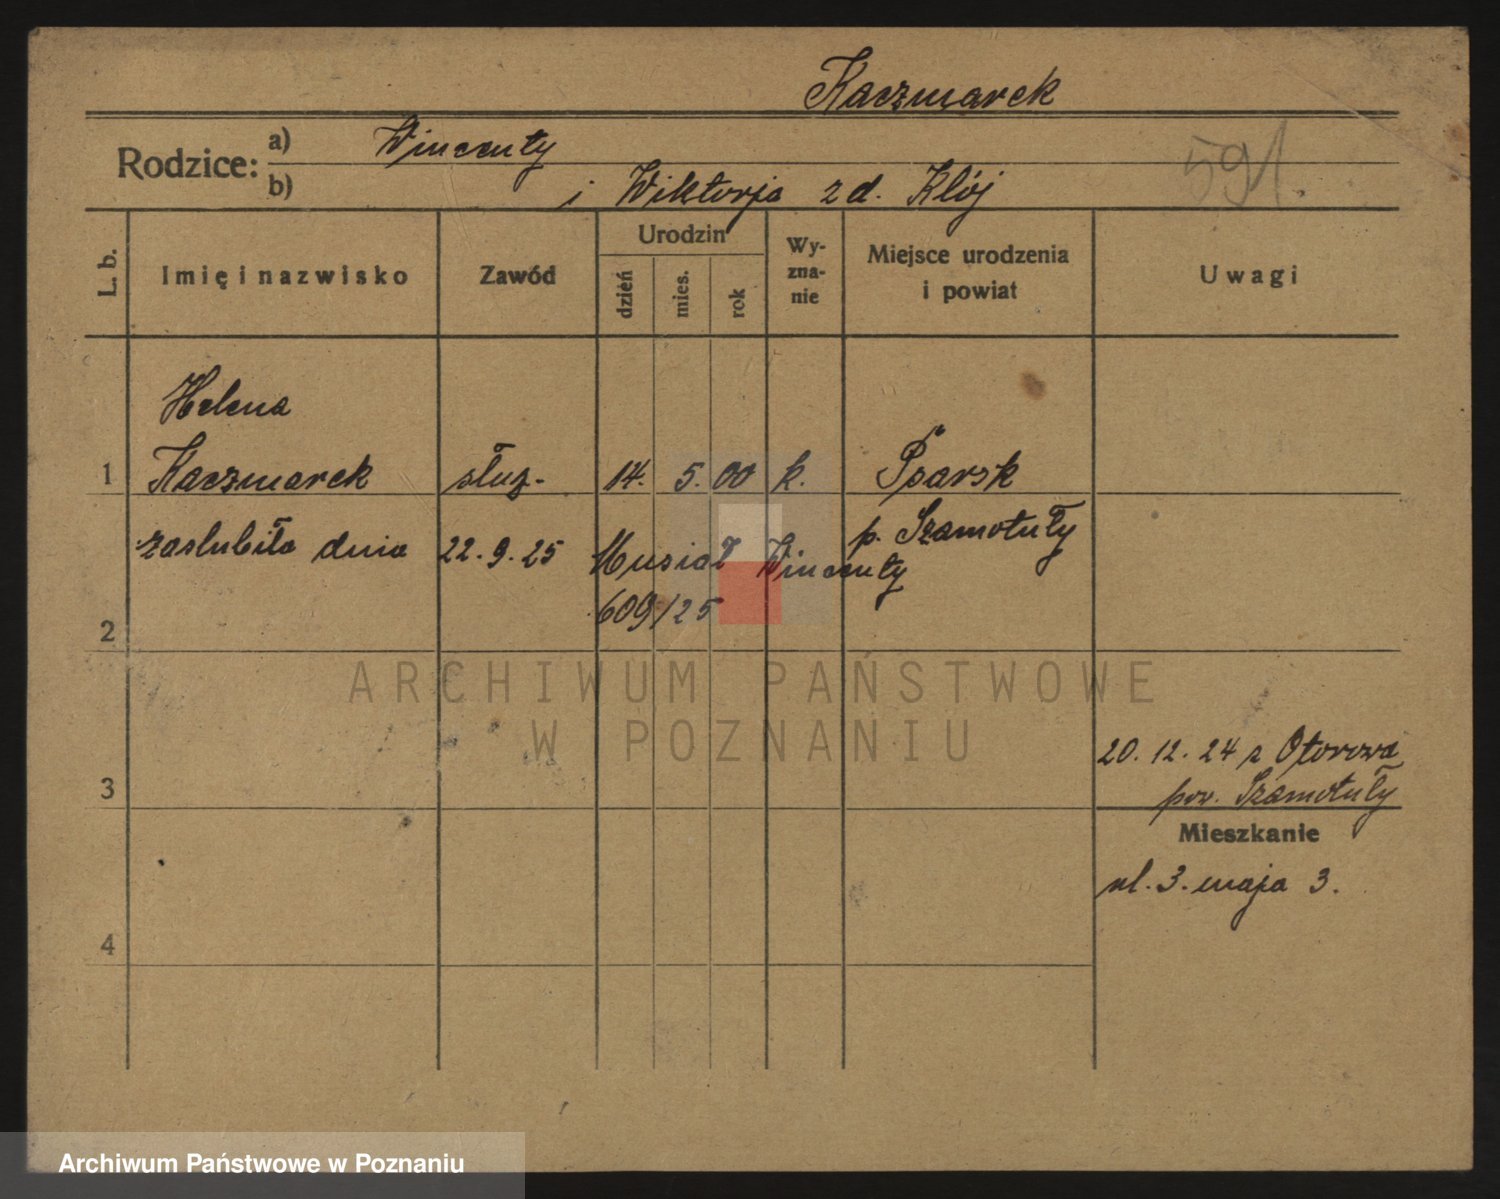 Kaczmarek
Rodzice: a) Wincenty
b) i Wiktorja z d. Klój
591.
L. b. Imię i nazwisko Zawód Urodzin dzień mies. rok Wy-zna-nie Miejsce urodzenia i powiat Uwagi
Helena
1 Kaczmarek służ. 14. 5. 00 k. Psarsk
p. Szamotuły
zaslubiła dnia 22.9.25 Musiał Wincenty
609/25
2
ARCHIWUM PAŃSTWOWE
W POZNANIU
20. 12. 24 z Otorowa
3 pow. Szamotuły
Mieszkanie
ul. 3. maja 3.
4
Archiwum Państwowe w Poznaniu